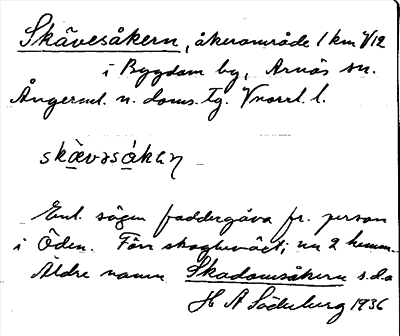 Skävesåkern, åkerområde 1 km V12
i Bygdom by, Arnäs sn.
Ångerml. n. doms. tg. Vnorrl. l.
skävəsåkaɳ
Enl. sägen faddergåva fr. person
i Öden. Förr skogbeväxt; nu 2 hemm.
Äldre namn Skadomsåkern s.d.o
H A Söderberg 1936